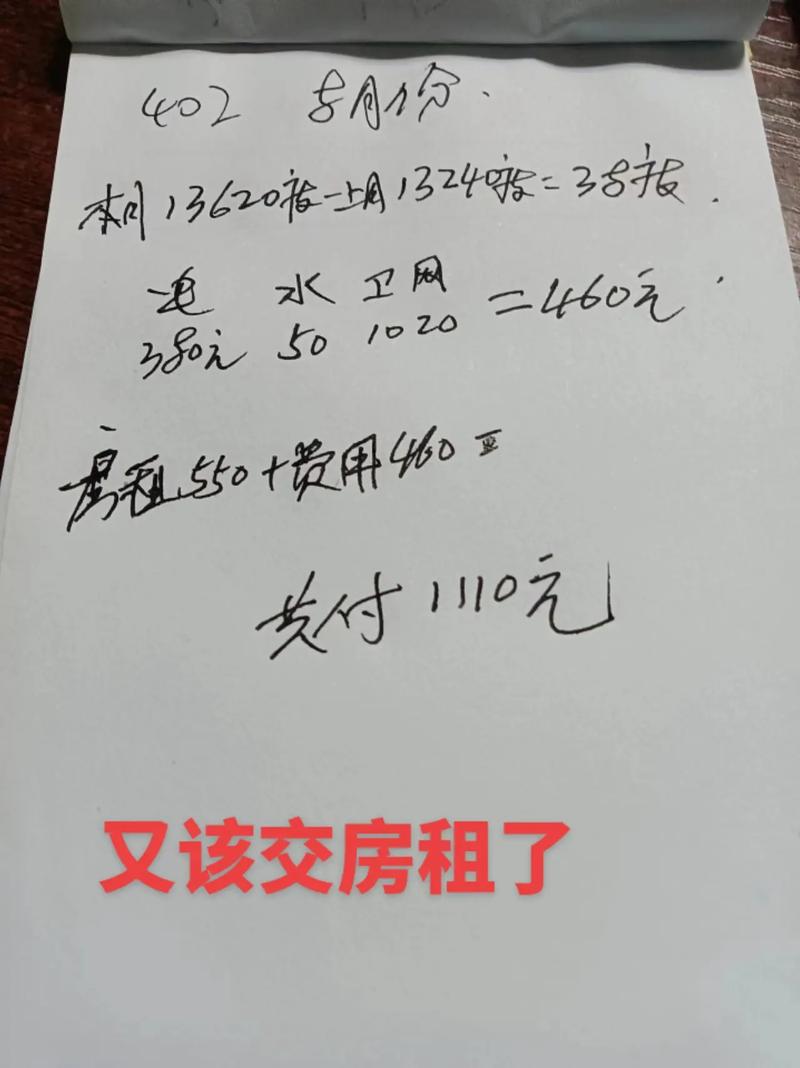 402 8月份.
本月13620度-上月13240度=38度.
电 水 卫 网
380元 50 10 20 =460元.
房租550+费用460=
共付1110元
又该交房租了